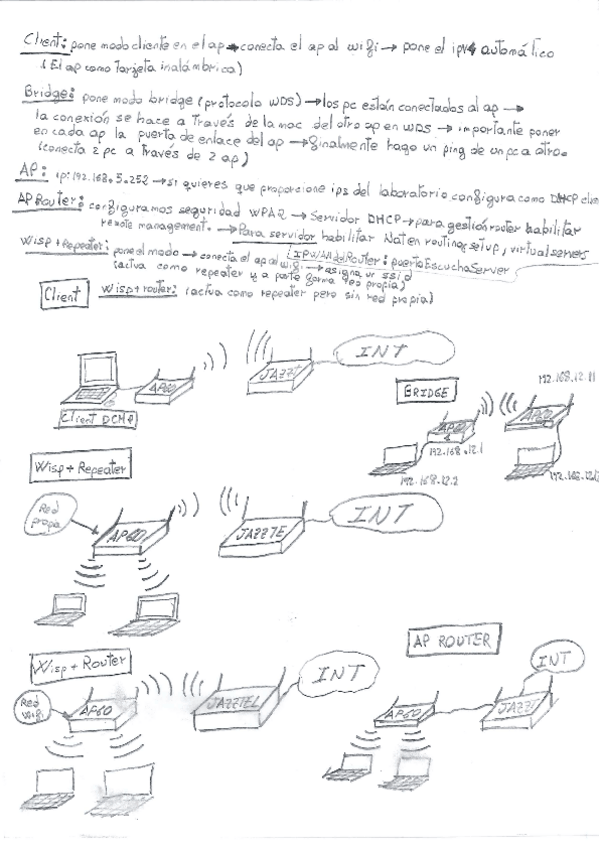 Client: pone modo cliente en el ap → conecta el ap al wifi → pone el ipv4 automático
(El ap como tarjeta inalámbrica)
Bridge: pone modo bridge (protocolo WDS) → los pc están conectados al ap →
la conexión se hace a través de la mac del otro ap en WDS → importante poner
en cada ap la puerta de enlace del ap → finalmente hago un ping de un pc a otro.
(conecta 2 pc a través de 2 ap)
AP: ip: 192.168.5.252 → si quieres que proporcione ips del laboratorio configura como DHCP clie
AP Router: configuramos seguridad WPA2 → Servidor DHCP → para gestión router habilitar
remote management. → Para servidor habilitar Nat en routing setup, virtual servers
IP WAN del Router: puerto Escucha Server
Wisp + Repeater: pone el modo → conecta el ap al wifi → asigna un ssid
(actua como repeater y a parte forma red propia)
Client
Wisp + router: (actua como repeater pero sin red propia)
INT
JAZZT
AP60
Client DCHP
BRIDGE
192.168.12.11
AP60
192.168.12.1
192.168.12.2
Wisp + Repeater
Red propia
AP60
JAZZTE
INT
Wisp + Router
Red wifi
AP60
JAZZTEL
INT
AP ROUTER
INT
AP60
JAZZT